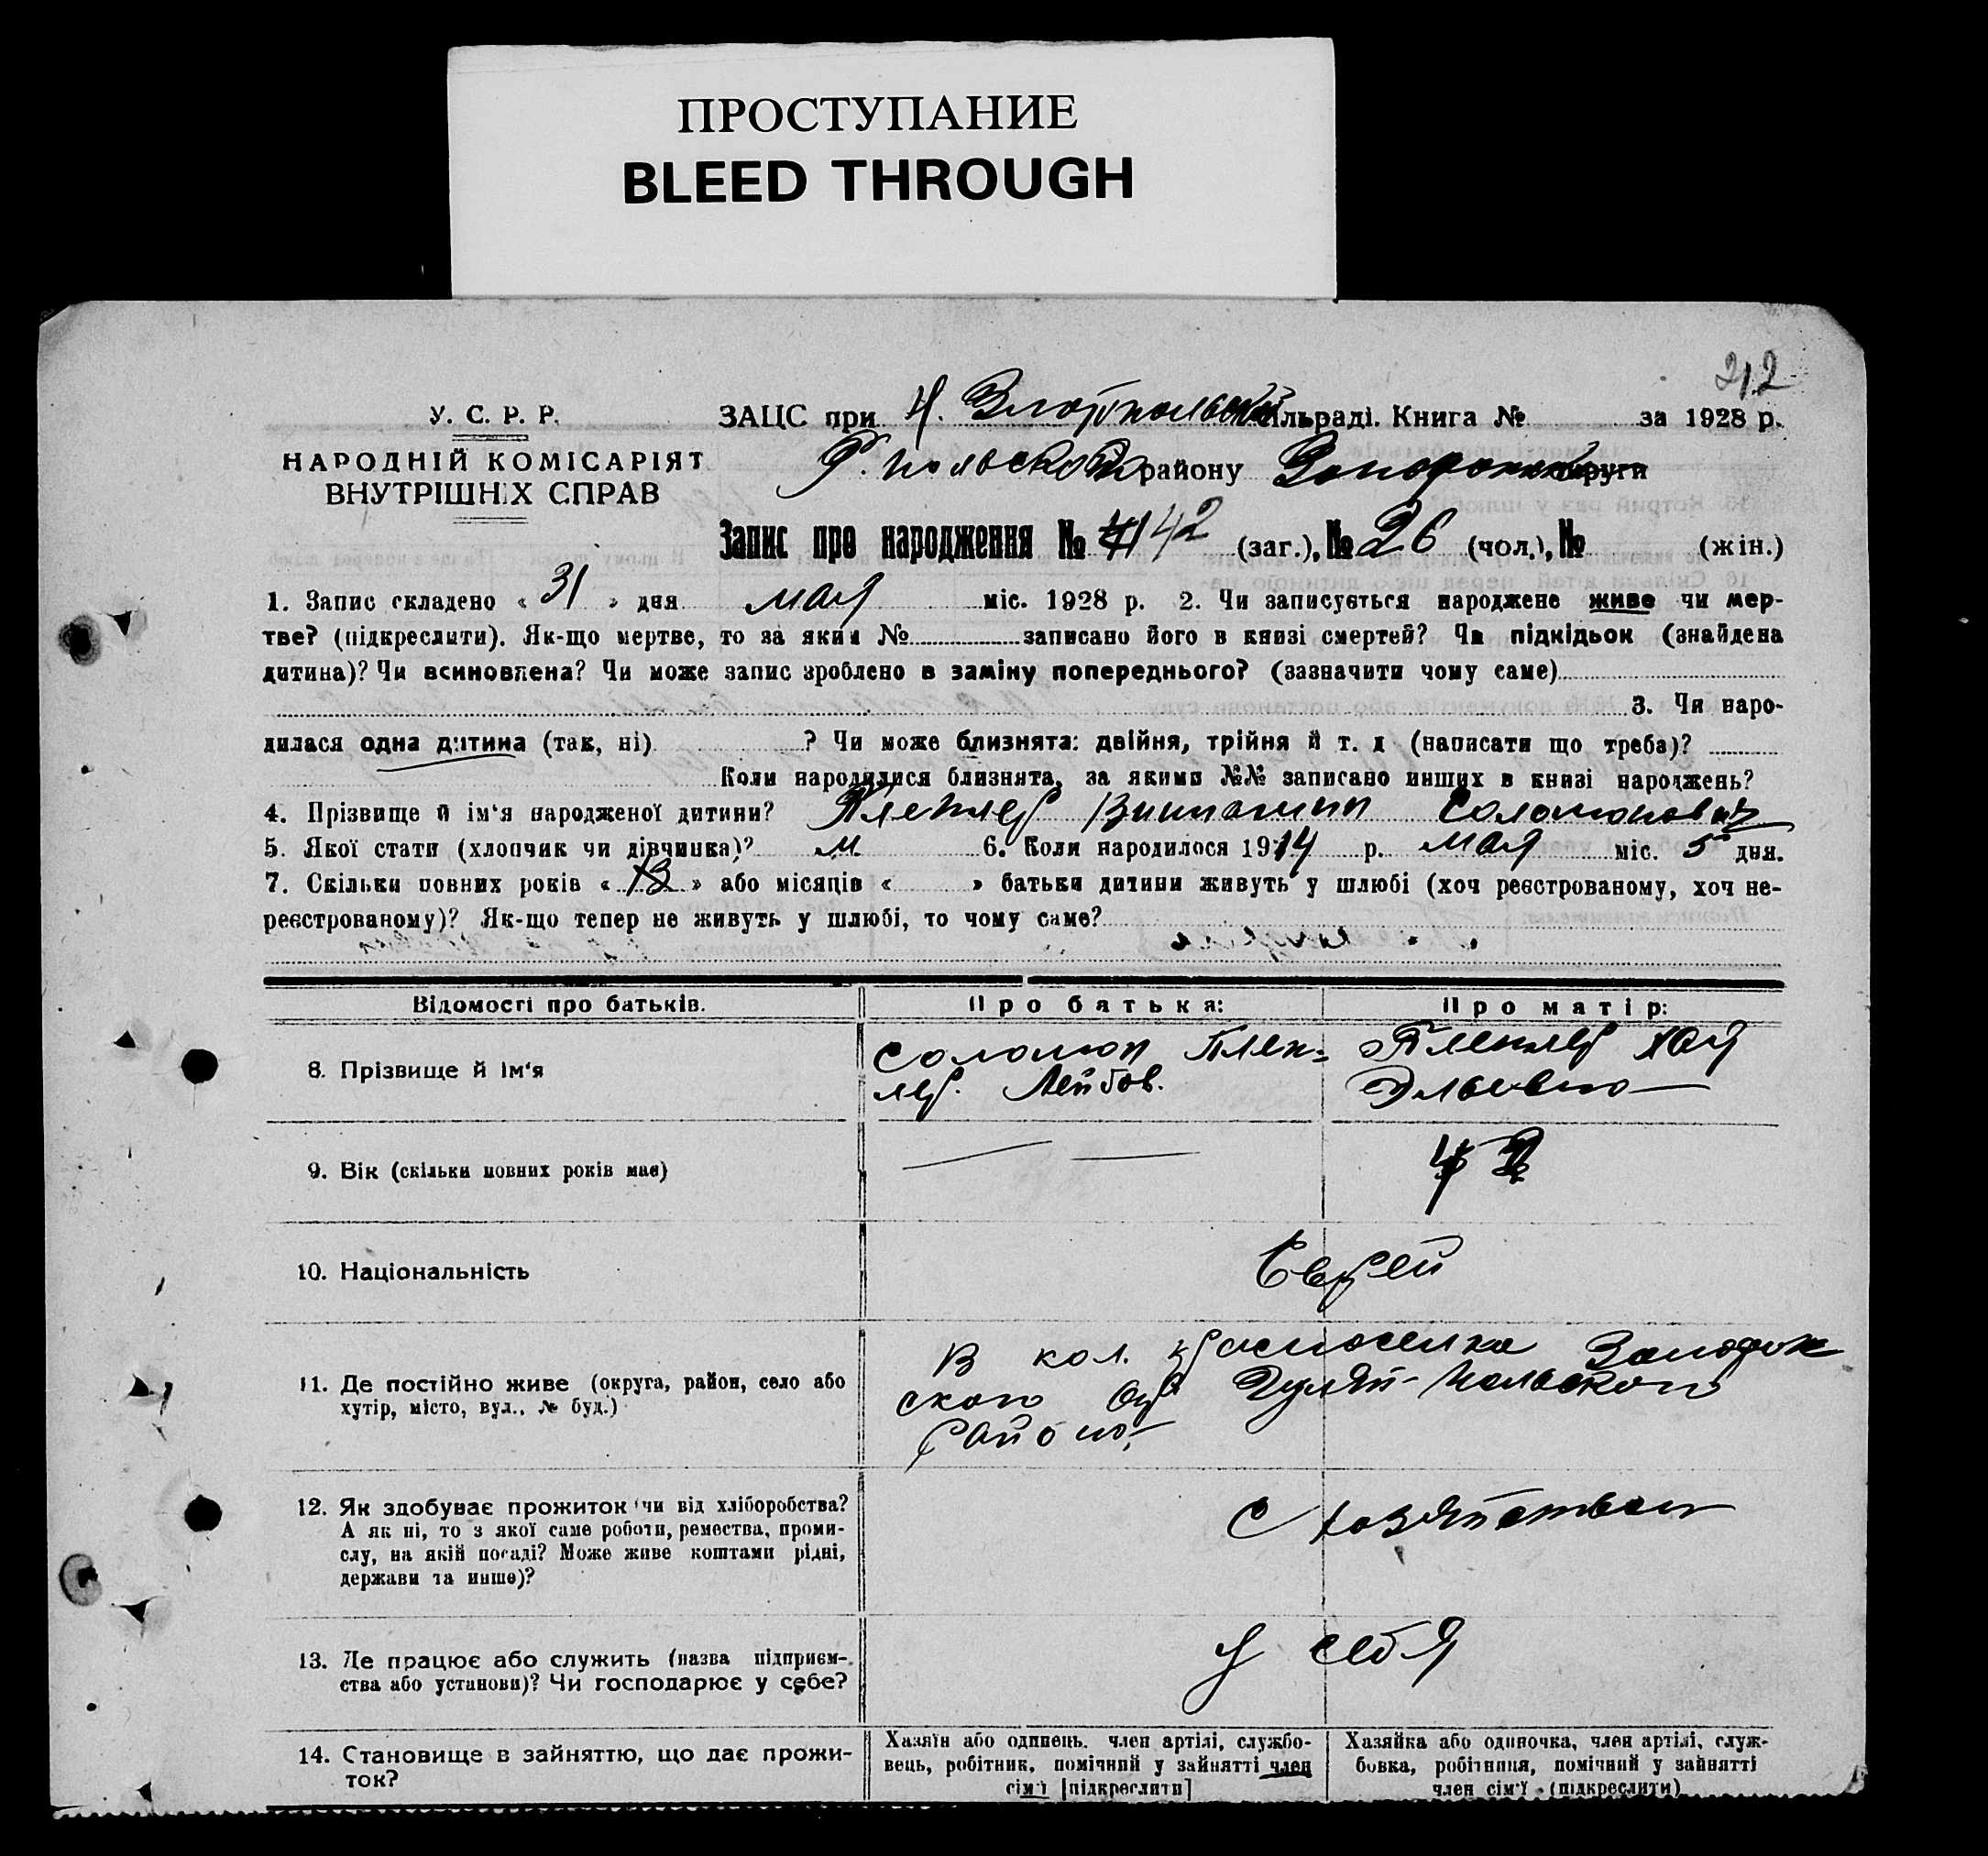 ПРОСТУПАНИЕ
BLEED THROUGH
212
У. С. Р. Р.
НАРОДНІЙ КОМІСАРІЯТ
ВНУТРІШНІХ СПРАВ
ЗАЦС при Н. Златопольской сільраді. Книга № за 1928 р.
Г. польского району Запорожской округи
Запис про народження № 42 (заг.), № 26 (чол.), № (жін.)
1. Запис складено « 31 » дня мая міс. 1928 р. 2. Чи записується народжене живе чи мер-
тве? (підкреслити). Як-що мертве, то за яким № записано його в книзі смертей? Чи підкідьок (знайдена
дитина)? Чи всиновлена? Чи може запис зроблено в заміну попереднього? (зазначити чому саме)
3. Чи наро-
дилася одна дитина (так, ні) ? Чи може близнята: двійня, трійня й т. д (написати що треба)?
Коли народилися близнята, за якими №№ записано инших в книзі народжень?
4. Прізвище й ім'я народженої дитини? Соломонович
5. Якої стати (хлопчик чи дівчинка)? м. 6. Коли народилося 1914 р. мая міс. 5 дня.
7. Скільки повних років « 13 » або місяців « » батьки дитини живуть у шлюбі (хоч реєстрованому, хоч не-
реєстрованому)? Як-що тепер не живуть у шлюбі, то чому саме?
Відомості про батьків.
Про батька:
Про матір:
8. Прізвище й ім'я
Соломон Плек-
лер. Лейбов.
Плеклер Хая
Эльевна
9. Вік (скільки повних років має)
42
10. Національність
Еврей
11. Де постійно живе (округа, район, село або
хутір, місто, вул., № буд.)
В кол. Красноселка Запорож
ского окр Гуляй-Польского
района
12. Як здобуває прожиток (чи від хліборобства?
А як ні, то з якої саме роботи, ремества, проми-
слу, на якій посаді? Може живе коштами рідні,
держави та инше)?
С хозяйства
13. Де працює або служить (назва підприєм-
ства або установи)? Чи господарює у себе?
У себя
14. Становище в зайняттю, що дає прожи-
ток?
Хазяїн або одинець, член артілі, службо-
вець, робітник, помічний у зайнятті член
сім'ї [підкреслити]
Хазяйка або одиночка, член артілі, служ-
бовка, робітниця, помічний у зайнятті
член сім'ї (підкреслити)